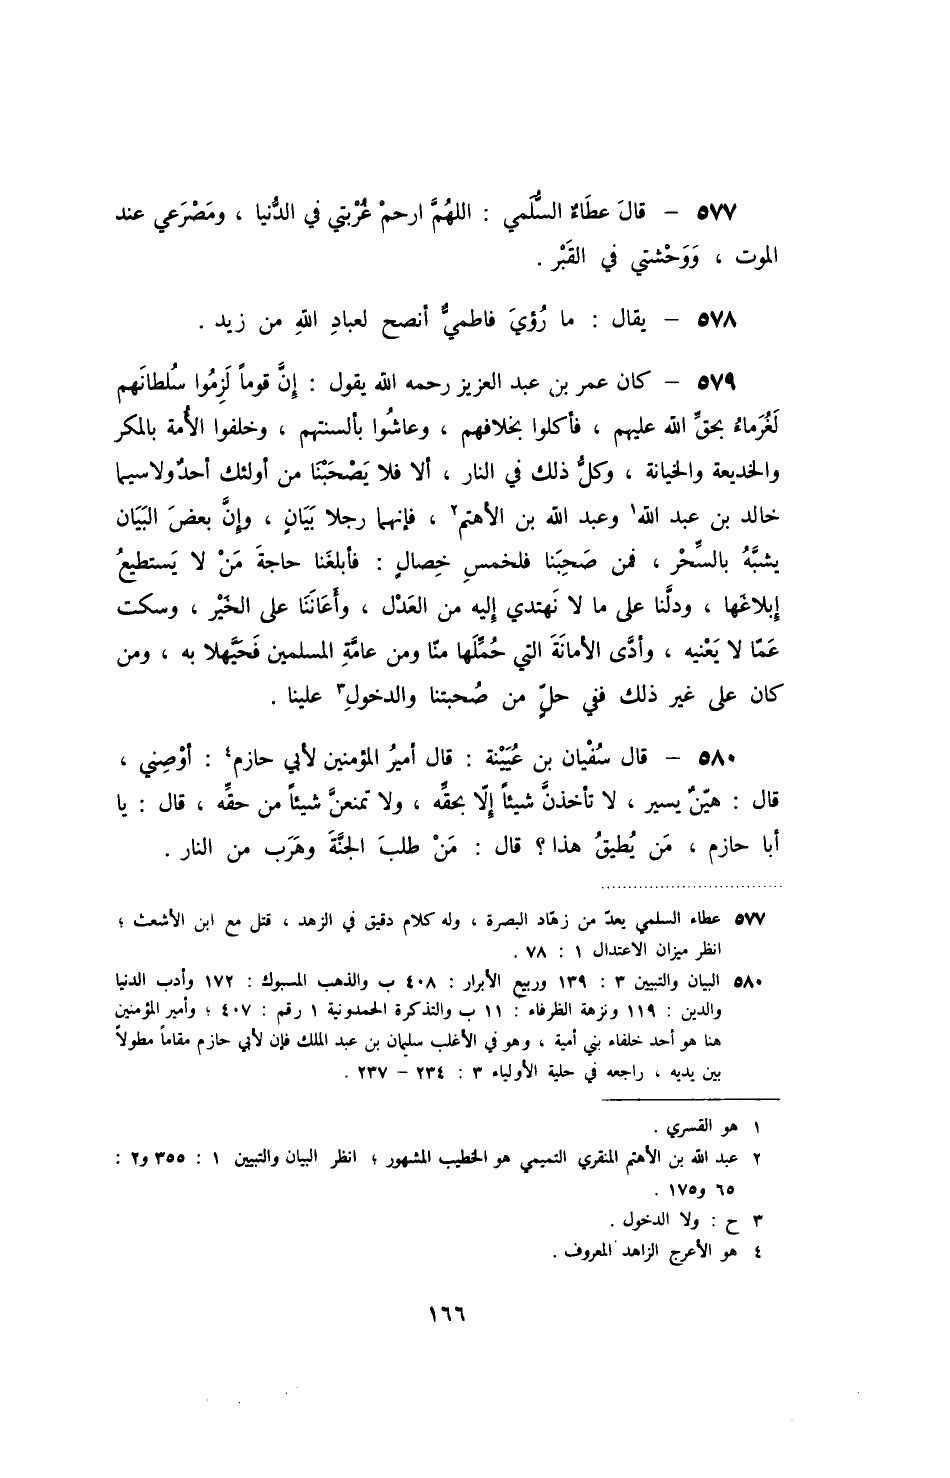 ٥٧٧ – قالَ عطَاءٌ السُّلَمي : اللهُمَّ ارحمْ غُرْبتي في الدُّنيا ، ومَصْرَعي عند
الموت ، وَوَحْشتي في القَبْر .
٥٧٨ – يقال : ما رُؤيَ فاطميٌّ أنصح لعبادِ اللهِ من زيد .
٥٧٩ – كان عمر بن عبد العزيز رحمه الله يقول : إنَّ قوماً لَزِمُوا سُلطانَهم
لَغُرَماءُ بحقِّ الله عليهم ، فأكلوا بخلافهم ، وعاشُوا بألسنتهم ، وخلفوا الأُمة بالمكر
والخديعة والخيانة ، وكلُّ ذلك في النار ، ألا فلا يَصْحَبْنَا من أولئك أحدٌ ولاسيما
خالد بن عبد الله١ وعبد الله بن الأهتم٢ ، فإنهما رجلا بَيَانٍ ، وإنَّ بعضَ البَيَان
يشبَّهُ بالسِّحْر ، فمن صَحِبَنا فلخمسِ خِصالٍ : فأبلغَنا حاجةَ مَنْ لا يَستطيعُ
إبلاغَها ، ودلَّنا على ما لا نَهتدي إليه من العَدْل ، وأَعَانَنَا على الخَيْر ، وسكت
عَمّا لا يَعْنيه ، وأدَّى الأمانَةَ التي حُمِّلَها منّا ومن عامَّةِ المسلمين فَحَيَّهلا به ، ومن
كان على غير ذلك ففي حلٍّ من صُحبتنا والدخولِ٣ علينا .
٥٨٠ – قال سُفْيان بن عُيَيْنة : قال أميرُ المؤمنين لأبي حازم٤ : أوْصِني ،
قال : هيّنٌ يسير ، لا تأخذنَّ شيئاً إلّا بحقِّه ، ولا تمنعنَّ شيئاً من حقِّه ، قال : يا
أبا حازم ، مَن يُطيقُ هذا ؟ قال : مَنْ طلبَ الجنَّةَ وهَرَب من النار .
٥٧٧ عطاء السلمي يعدّ من زهّاد البصرة ، وله كلام دقيق في الزهد ، قتل مع ابن الأشعث ؛
انظر ميزان الاعتدال ١ : ٧٨ .
٥٨٠ البيان والتبيين ٣ : ١٣٩ وربيع الأبرار : ٤٠٨ ب والذهب المسبوك : ١٧٢ وأدب الدنيا
والدين : ١١٩ ونزهة الظرفاء : ١١ ب والتذكرة الحمدونية ١ رقم : ٤٠٧ ؛ وأمير المؤمنين
هنا هو أحد خلفاء بني أمية ، وهو في الأغلب سليمان بن عبد الملك فإن لأبي حازم مقاماً مطولاً
بين يديه ، راجعه في حلية الأولياء ٣ : ٢٣٤ – ٢٣٧ .
١ هو القسري .
٢ عبد الله بن الأهتم المنقري التميمي هو الخطيب المشهور ؛ انظر البيان والتبيين ١ : ٣٥٥ و٢ :
٦٥ و١٧٥ .
٣ ح : ولا الدخول .
٤ هو الأعرج الزاهد المعروف .
١٦٦